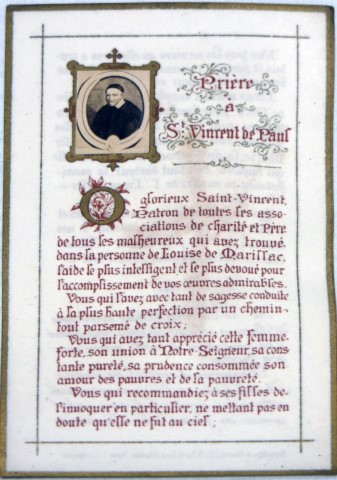 Prière
à
St Vincent de Paul
O glorieux Saint-Vincent,
Patron de toutes les asso-
ciations de charité et Père
de tous les malheureux qui avez trouvé,
dans la personne de Louise de Marillac,
l'aide le plus intelligent et le plus dévoué pour
l'accomplissement de vos œuvres admirables.
Vous qui l'avez avec tant de sagesse conduite
à la plus haute perfection par un chemin
tout parsemé de croix ;
Vous qui avez tant apprécié cette femme
forte, son union à Notre-Seigneur, sa cons
tante pureté, sa prudence consommée son
amour des pauvres et de la pauvreté.
Vous qui recommandiez à ses filles de
l'invoquer en particulier, ne mettant pas en
doute qu'elle ne fut au ciel ;